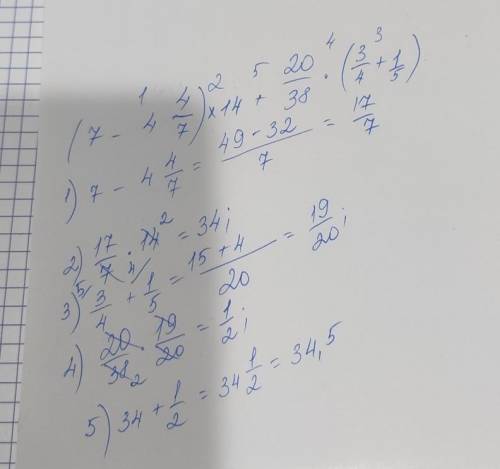 (7 - 4 4/7)×14 + 20/38 · (3/4 + 1/5)
1 2 5 4 3
1) 7 - 4 4/7 = (49 - 32)/7 = 17/7
2) 17/7 · 14 2 = 34;
3) 5/ 3/4 + 4/ 1/5 = (15 + 4)/20 = 19/20;
4) 20/38 2 · 19/20 = 1/2;
5) 34 + 1/2 = 34 1/2 = 34,5